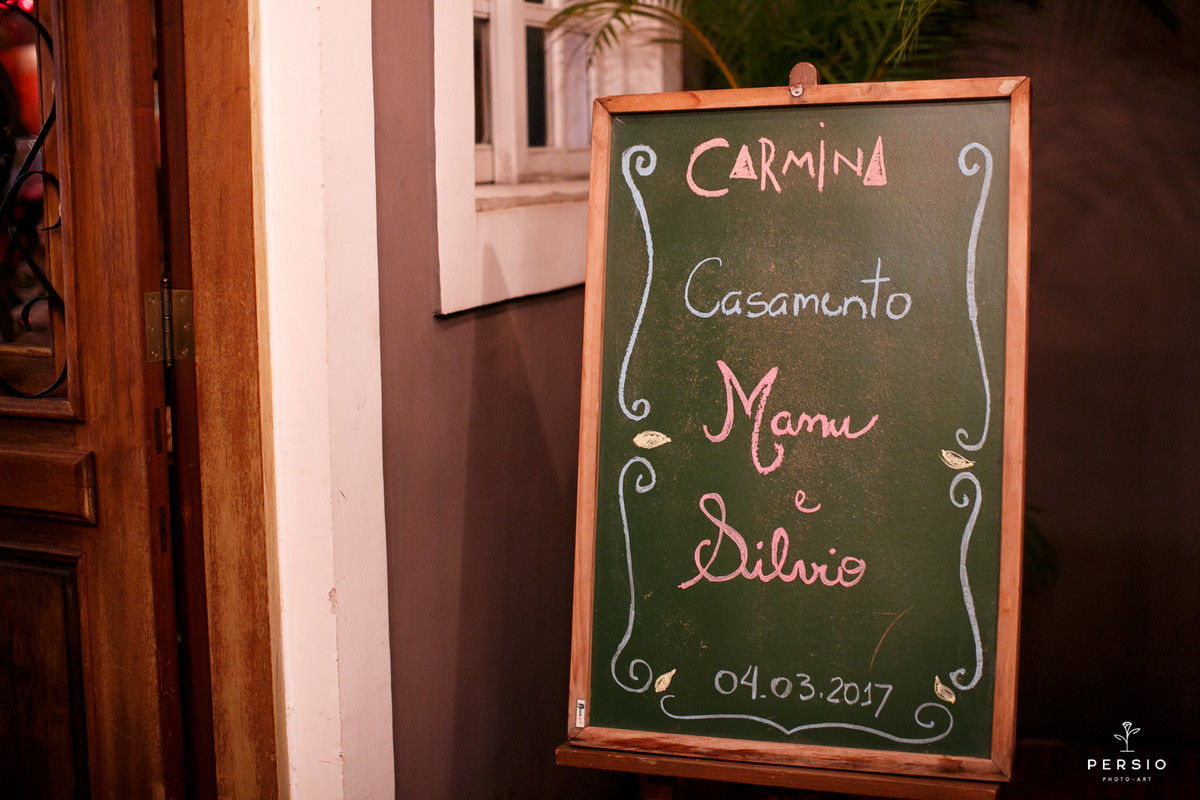 CARMINA
Casamento
Manu
e
Silvio
04.03.2017
PERSIO
PHOTO-ART